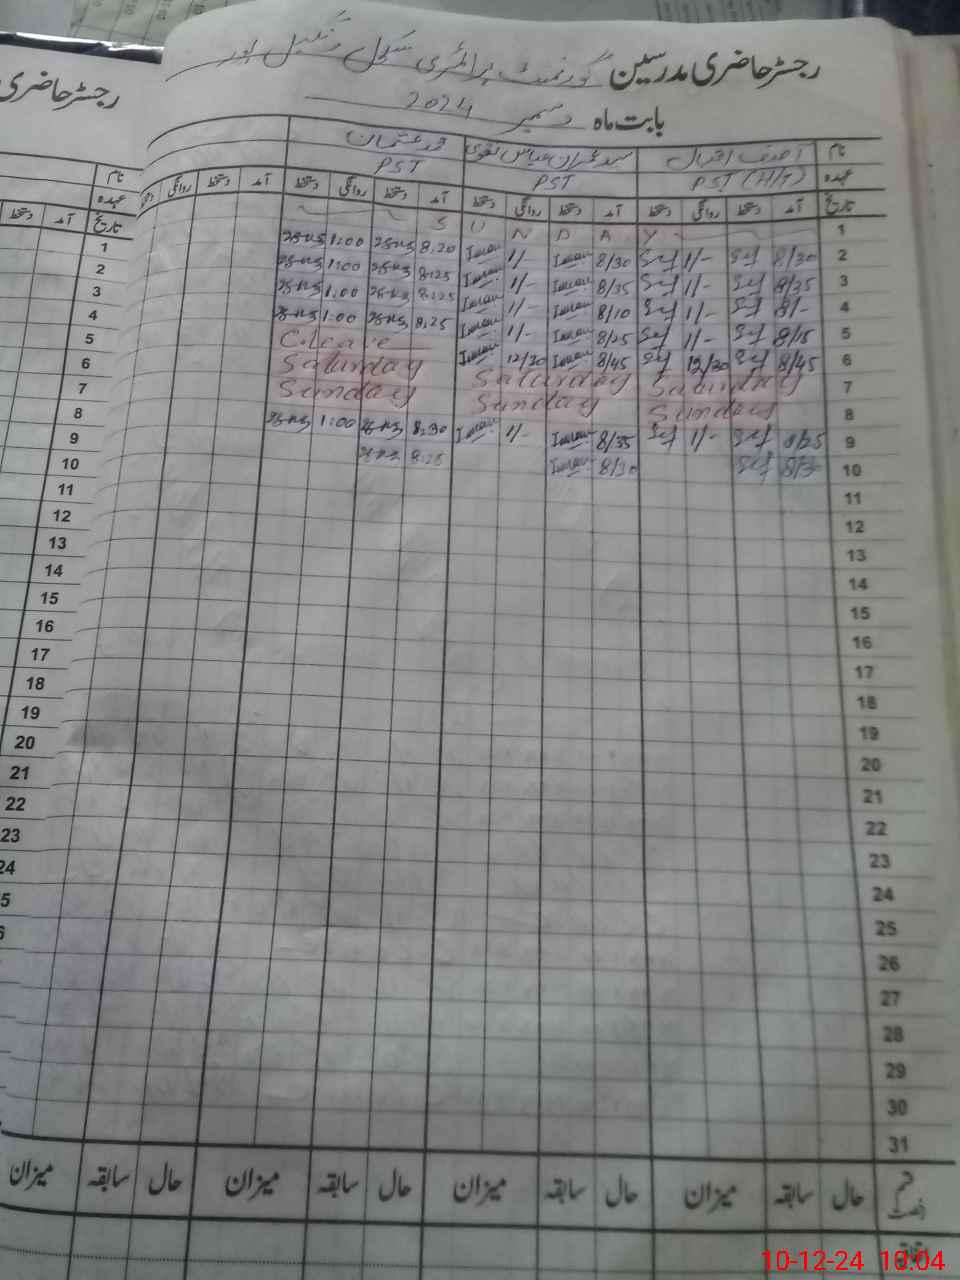 رجسٹر حاضری مدرسین گورنمنٹ پرائمری سکول
بابت ماہ دسمبر 2024
نام آصف اقبال سید عمران عباس نقوی محمد عثمان
عہدہ PST (H/T) PST PST
تاریخ آمد دستخط روانگی دستخط آمد دستخط روانگی دستخط آمد دستخط روانگی دستخط آمد دستخط روانگی
1 S U N D A Y
2 8/30 1/- 8/30 Imran 1/- Imran 8:20 1:00
3 8/35 1/- 8/35 Imran 1/- Imran 8:25 1:00
4 8/- 1/- 8/10 Imran 1/- Imran 8:25 1:00
5 8/15 1/- 8/25 Imran 1/- Imran 8:25 1:00
6 8/45 12/30 8/45 Imran 12/30 Imran C.Leave
7 Saturday Saturday Saturday
8 Sunday Sunday Sunday
9 8/25 1/- 8/35 Imran 1/- Imran 8:30 1:00
10 8/30 Imran 8:25
11
12
13
14
15
16
17
18
19
20
21
22
23
24
25
26
27
28
29
30
31
قسم رخصت حال سابقہ میزان حال سابقہ میزان حال سابقہ میزان حال سابقہ میزان
رجسٹر حاضری
نام
عہدہ
تاریخ آمد دستخط
1
2
3
4
5
6
7
8
9
10
11
12
13
14
15
16
17
18
19
20
21
22
23
24
10-12-24 10:04